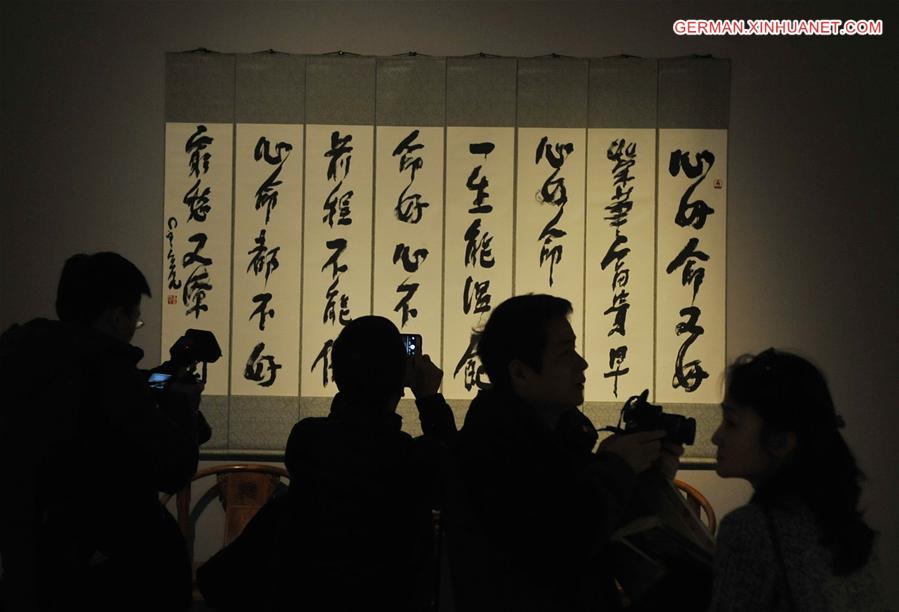 GERMAN.XINHUANET.COM
心好命又好
榮華富貴早
心好命
一生能溫飽
命好心不
前程不能保
心命都不好
窮愁又潦